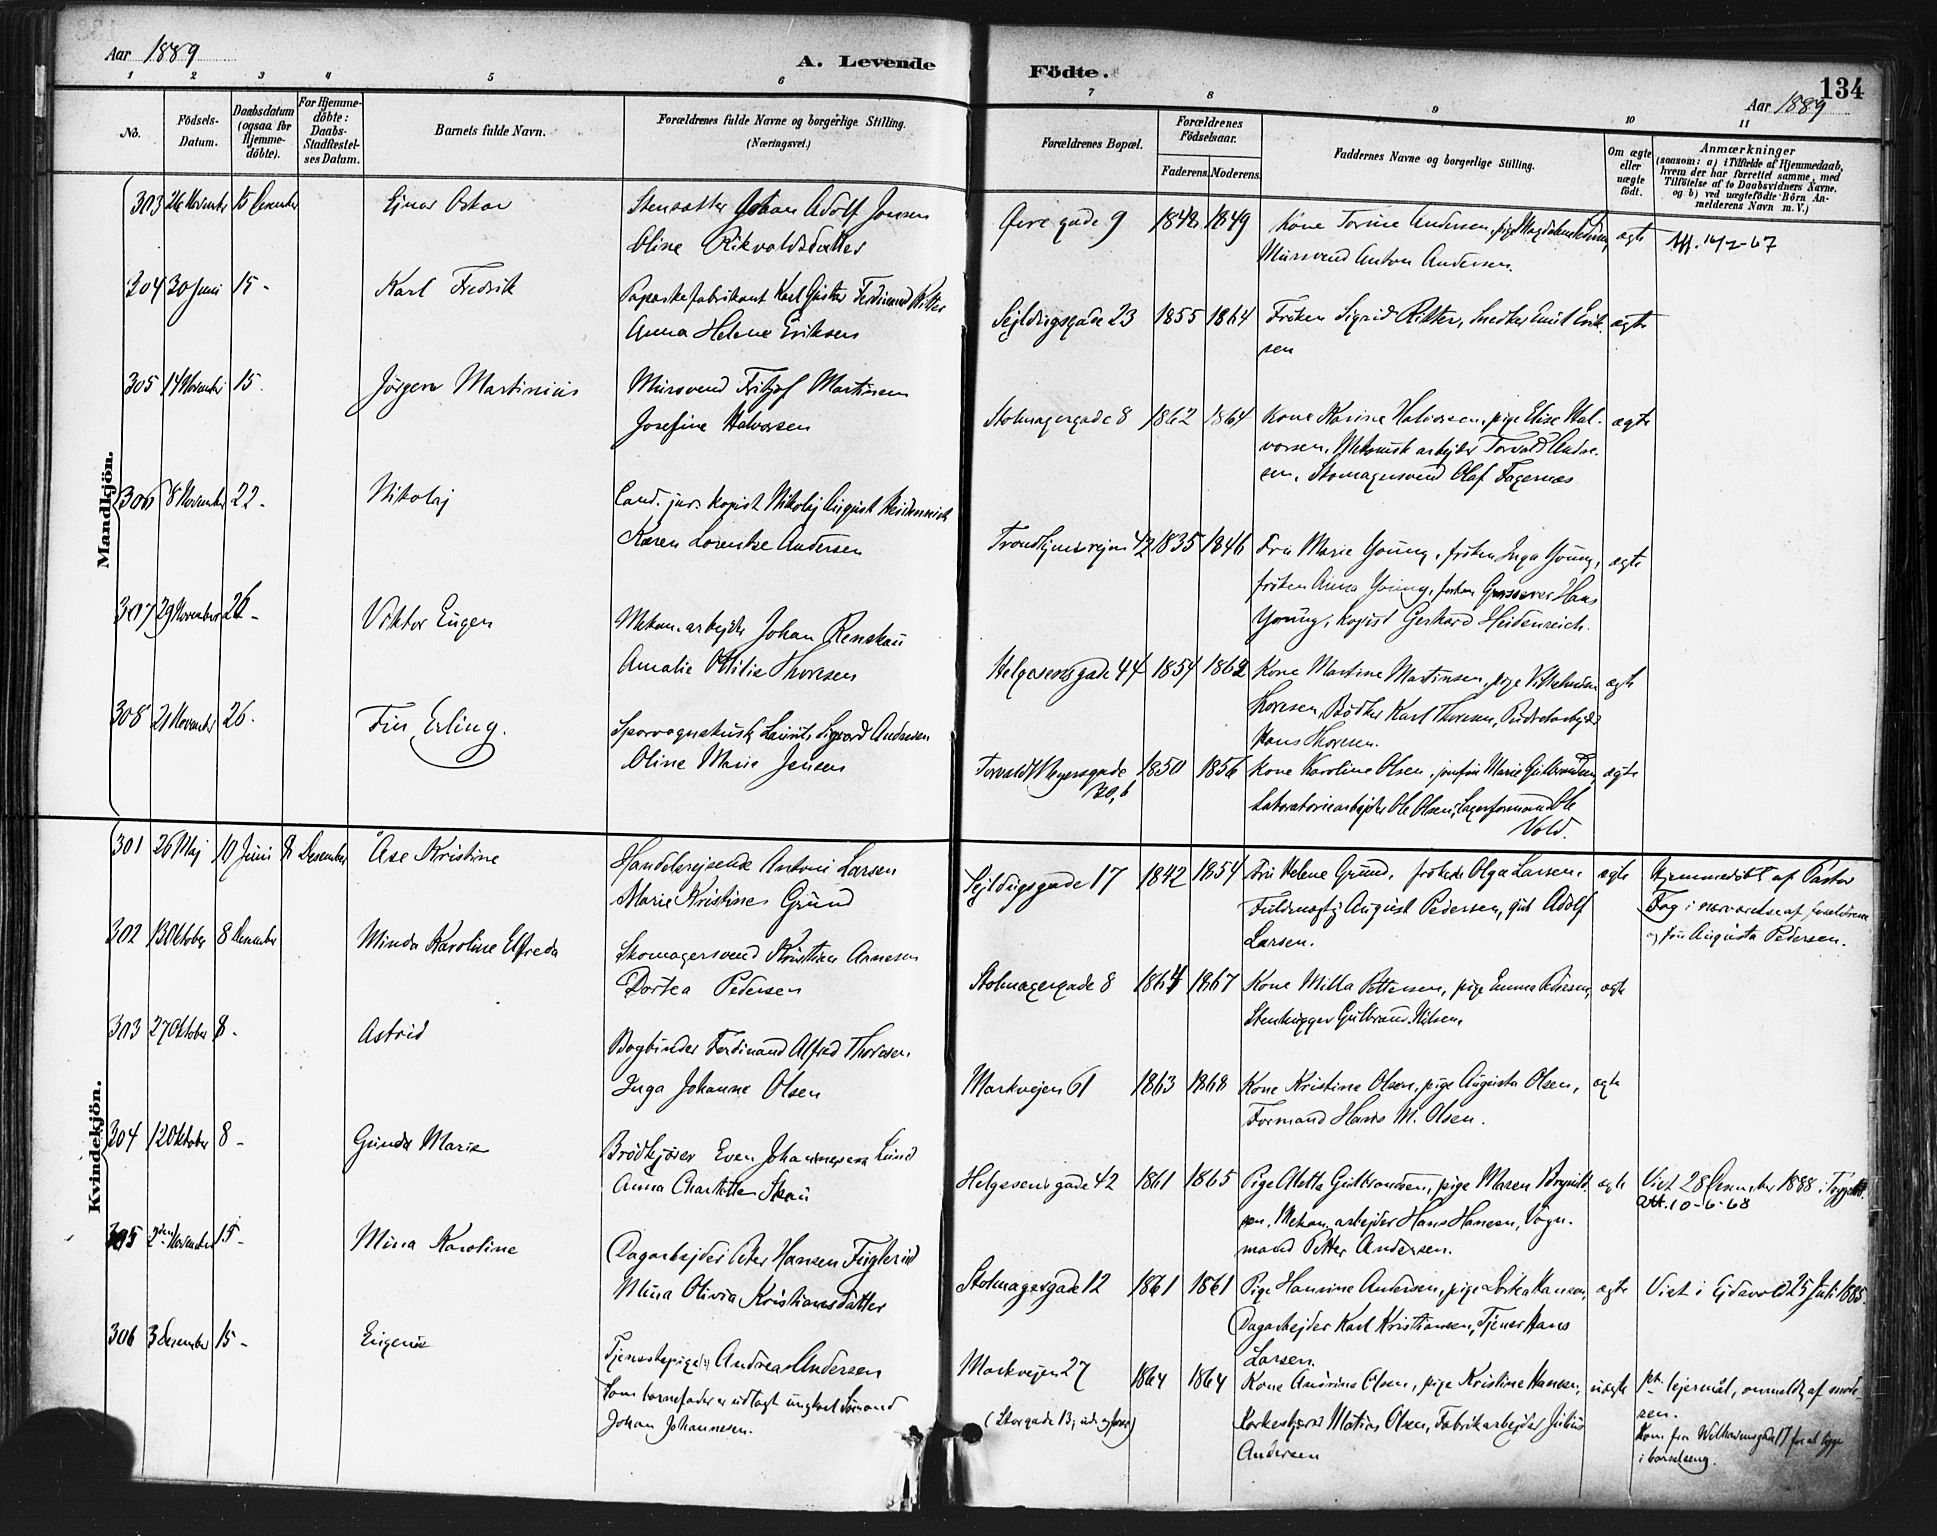 Aar 1889
A. Levende
Födte.
134
Aar 1889
1 2 3 4 5 6 7 8 9 10 11
No.
Födsels-
Datum.
Daabsdatum
(ogsaa for
Hjemme-
döbte).
For Hjemme-
döbte:
Daabs-
Stadfæstel-
ses Datum.
Barnets fulde Navn.
Forældrenes fulde Navne og borgerlige Stilling.
(Næringsvei.)
Forældrenes Bopæl.
Forældrenes
Födselsaar.
Faderens. Moderens.
Faddernes Navne og borgerlige Stilling.
Om ægte
eller
uægte
födt.
Anmærkninger
(saasom: a) i Tilfælde af Hjemmedaab,
hvem der har forrettet samme, med
Tilföielse af to Daabsvidners Navne,
og b) ved uægtefödte Börn An-
melderens Navn m. V.)
Mandkjön.
303 26 November 15 December Ejnar Oskar Stensætter Johan Adolf Jonsen
Oline Rikvoldsdatter
Övregade 9 1848 1849 Kone Torine Andersen, pige Magdalene
Mursvend Anton Andersen.
ægte
Att. 16/2-67
304 30 Juni 15 - Karl Fredrik Papæskefabrikant Karl Gustav Ferdinand Ritter
Anna Helene Eriksen
Sejldugsgade 23 1855 1864 Fröken Sigrid Ritter, Snedker Emil Erik-
sen
ægte
305 14 November 15. Jörgen Martinius Mursvend Fritjof Martinsen
Josefine Halvorsen
Stolmagergade 8 1862 1864 Kone Karine Halvorsen, pige Elise Hal-
vorsen, Mekanisk arbejder Torvald Andre-
sen, Skomagersvend Olaf Fagernæs
ægte
306 8 November 22 - Nikolaj Cand. jur. Kopist Nikolaj August Heidenreich
Karen Lorentze Andersen
Trondhjemsvejen 42 1835 1846 Fru Marie Young, fröken Inga Young,
fröken Anna Young, Hans
Young, Kopist Gerhard Heidenreich.
ægte
307 29 November 26 - Viktor Eugen Mekan. arbejder Johan Renskau
Amalie Ottilie Thoresen
Helgesensgade 44 1854 1862 Kone Martine Martinsen, pige Vilhelmine
Thoresen, Bödker Karl Thoresen,
Hans Thoresen.
ægte
308 21 November 26. Fin Erling. Sporvognskusk Laurits Sigvard Andresen
Oline Marie Jensen
Torvald Meyersgade
30, b
1850 1856 Kone Karoline Olsen, jomfru Marie Gulbrandsen,
Laboratoriearbejder Ole Olsen, Lagerformand Ole
Vold.
ægte
Kvindekjön.
301 26 Maj 10 Juni 8 Desember Åse Kristine Handelsrejsende Anton Larsen
Marie Kristine Grund
Sejldugsgade 17 1842 1854 Fru Helene Grund, fröken Olga Larsen,
Fuldmægtig August Pedersen, Adolf
Larsen.
ægte
Hjemmedöbt af Pastor
Fog i nærværelse af forældrene
og fru Augusta Pedersen.
302 13 Oktober 8 Desember Minda Karoline Elfreda Skomagersvend Kristian Arnesen
Dortea Pedersen
Stolmagergade 8 1864 1867 Kone Milla Pettersen, pige Emma Pedersen,
Stenhugger Gulbrand Nilsen.
ægte
303 27 Oktober 8 - Astrid Bogbinder Ferdinand Alfred Thoresen
Inga Johanne Olsen
Markvejen 61 1863 1868 Kone Kristine Olsen, pige Augusta Olsen,
Formand Hans M. Olsen.
ægte
304 12 Oktober 8 - Gunda Marie Brödkjörer Even Johannesen Lund
Anna Charlotte Skau
Helgesensgade 42 1861 1865 Pige Aletta Gulbrandsen, pige Maren Bryni-
sen, Mekan. arbejder Hans Hansen, Vogn-
mand Petter Andersen.
ægte
Viet 28 Desember 1888 i
Att. 10-6-68
305 2den November 15 - Mina Karoline Dagarbejder Peter Hansen Fuglerud
Mina Olivia Kristiansdatter
Stolmagergade 12 1861 1861 Pige Hansine Andersen, pige Dortea Hansen,
Dagarbejder Karl Kristiansen, Tjener Hans
Larsen.
ægte
Viet i Ejdsvold 25 Juli 1885.
306 3 Desember 15 - Eugenie Tjenestepige Andrea Andersen
Som barnefader er udlagt ungkarl Sömand
Johan Johannesen.
Markvejen 27
(Storgade 13,
1864 1864 Kone Andrine Olsen, pige Kristine Hansen,
Matias Olsen, Fabrikarbejder Julius
Andersen
uægte
lejermål, anmeldt af mode-
ren.
Kom fra Wilhelmsgade 17 for at ligge
i barselseng.